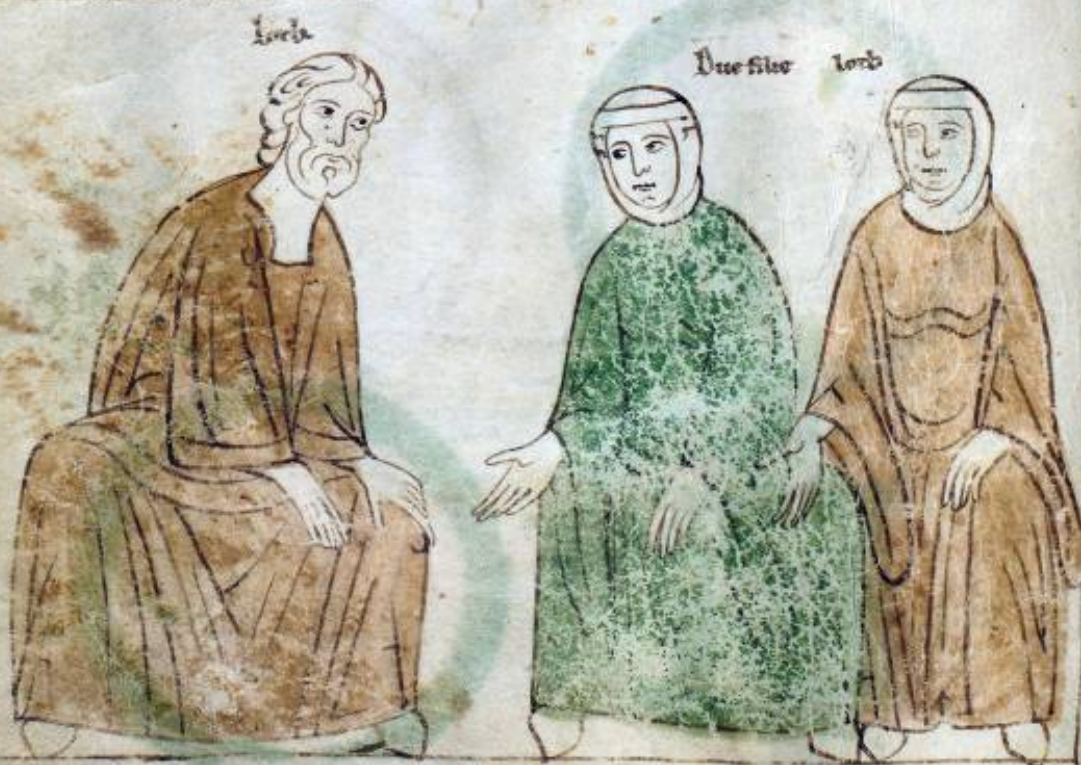 Loth
Due filie loth